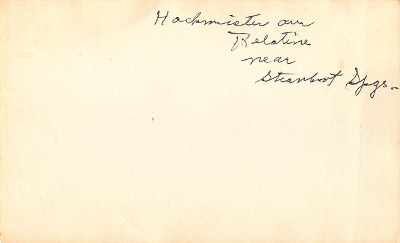 Hockmister our
Relative
near
Steamboat Spgs.